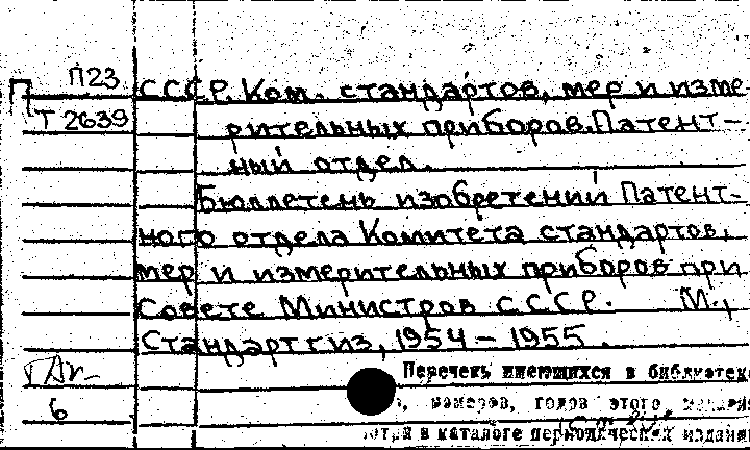 П23
П
Т 2639
СССР. Ком. стандартов, мер и изме-
рительных приборов. Патент-
ный отдел.
Бюллетень изобретений Патент-
ного отдела Комитета стандартов,
мер и измерительных приборов при
Совете Министров СССР. М.,
Стандартгиз, 1954 – 1955.
6
Перечень имеющихся в библиотеке
номеров, годов этого
в каталоге периодических издани